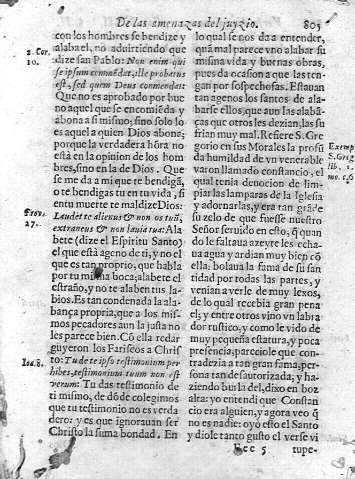 De las amenazas del juyzio. 805
con los hombres se bendize y
alaba el, no aduirtiendo que
dize san Pablo: Non enim qui
se ipsum commēdat, ille probatus
est, sed quem Deus commendat:
Que no es aprobado por bue
no aquel que se encomiēda y
abona a si mismo; sino solo lo
es aquel a quien Dios abona;
porque la verdadera hōra no
está en la opinion de los hom
bres, sino en la de Dios. Que
se me da a mi que te bendigā,
o te bendigas tu en tu vida, si
en tu muerte te maldize Dios:
Laudet te alienus & non os tuū,
extraneus & non lauia tua: Ala
bete (dize el Espiritu Santo)
el que está ageno de ti, y no el
que es tan proprio, que habla
por tu misma boca; alabete el
estraño, y no te alaben tus la-
bios. Es tan condenada la ala-
bança propria, que a los mis-
mos pecadores aun la justa no
les parece bien. Cō ella redar
guyeron los Fariseos a Chris
to: Tu de te ipso testimonium per
hibes, testimonium tuum non est
verum: Tu das testimonio de
ti mismo, de dōde colegimos
que tu testimonio no es verda
dero: y es que ignorauan ser
Christo la suma bondad. En
2. Cor.
10.
Prou.
27.
Ioa. 8.
lo qual se nos da a entender,
quā mal parece vno alabar su
misma vida y buenas obras,
pues da ocasion a que las ten-
gan por sospechosas. Estauan
tan agenos los santos de ala-
barse ellos, que aun las alabā-
ças que otros les dezian, las su
frian muy mal. Refiere S. Gre
gorio en sus Morales la profū
da humildad de vn venerable
varon llamado constancio, el
qual tenia deuocion de lim-
piar las lamparas de la Iglesia
y adornarlas, y era tan grāde
su zelo de que fuesse nuestro
Señor seruido en esto, q̄ quan
do le faltaua azeyte les echa-
ua agua y ardian muy bien cō
ella: bolaua la fama de su san
tidad por todas las partes, y
venian a verle de muy lexos,
de lo qual recebia gran pena
el, y entre otros vino vn labra
dor rustico, y como le vido de
muy pequeña estatura, y poca
presencia, pareciole que con-
tradezia a tan gran fama, per-
sona tan desautorizada, y ha-
ziendo burla del, dixo en boz
alta: yo entendi que Constan
cio era alguien, y agora veo q̄
no es nadie: oyó esto el Santo
y diole tanto gusto el verse vi
Exemp.
S. Greg
lib. 1.
Eee 5 tupe-